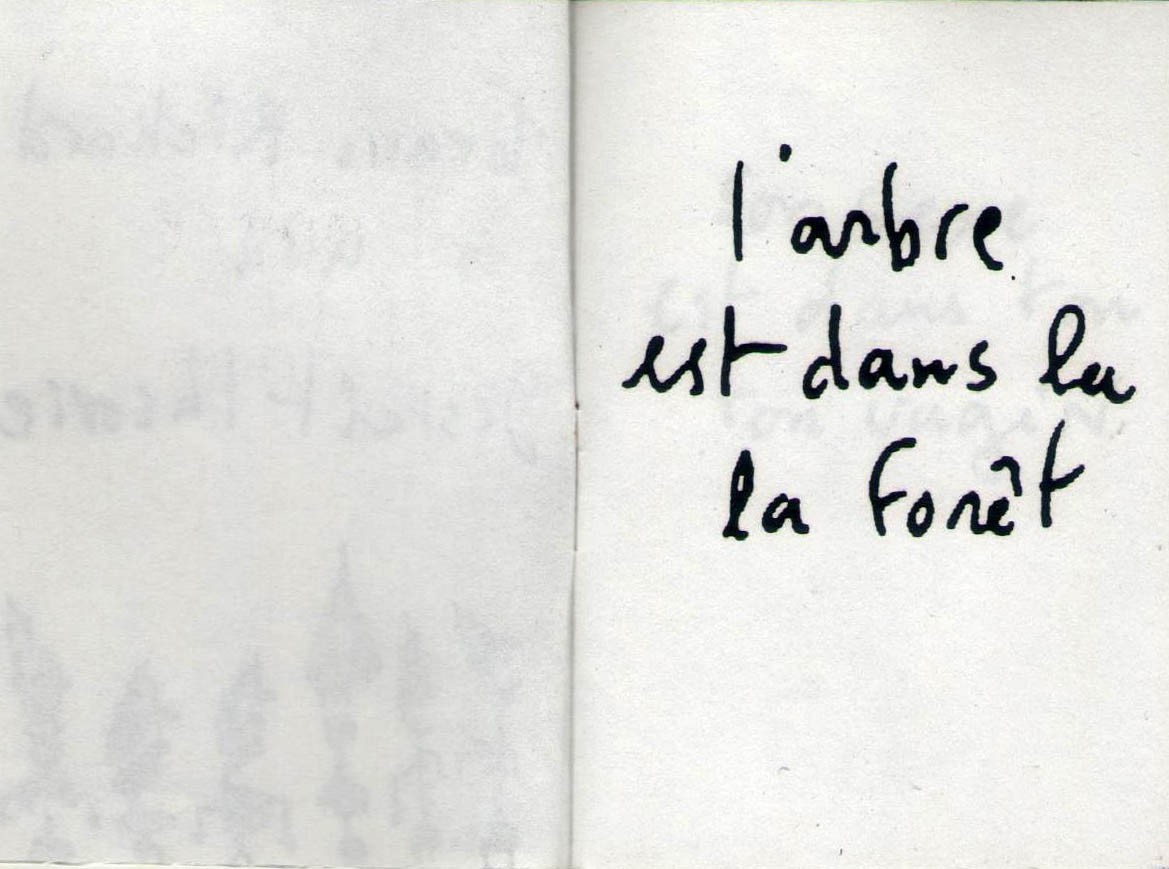 l'arbre
est dans la
la forêt